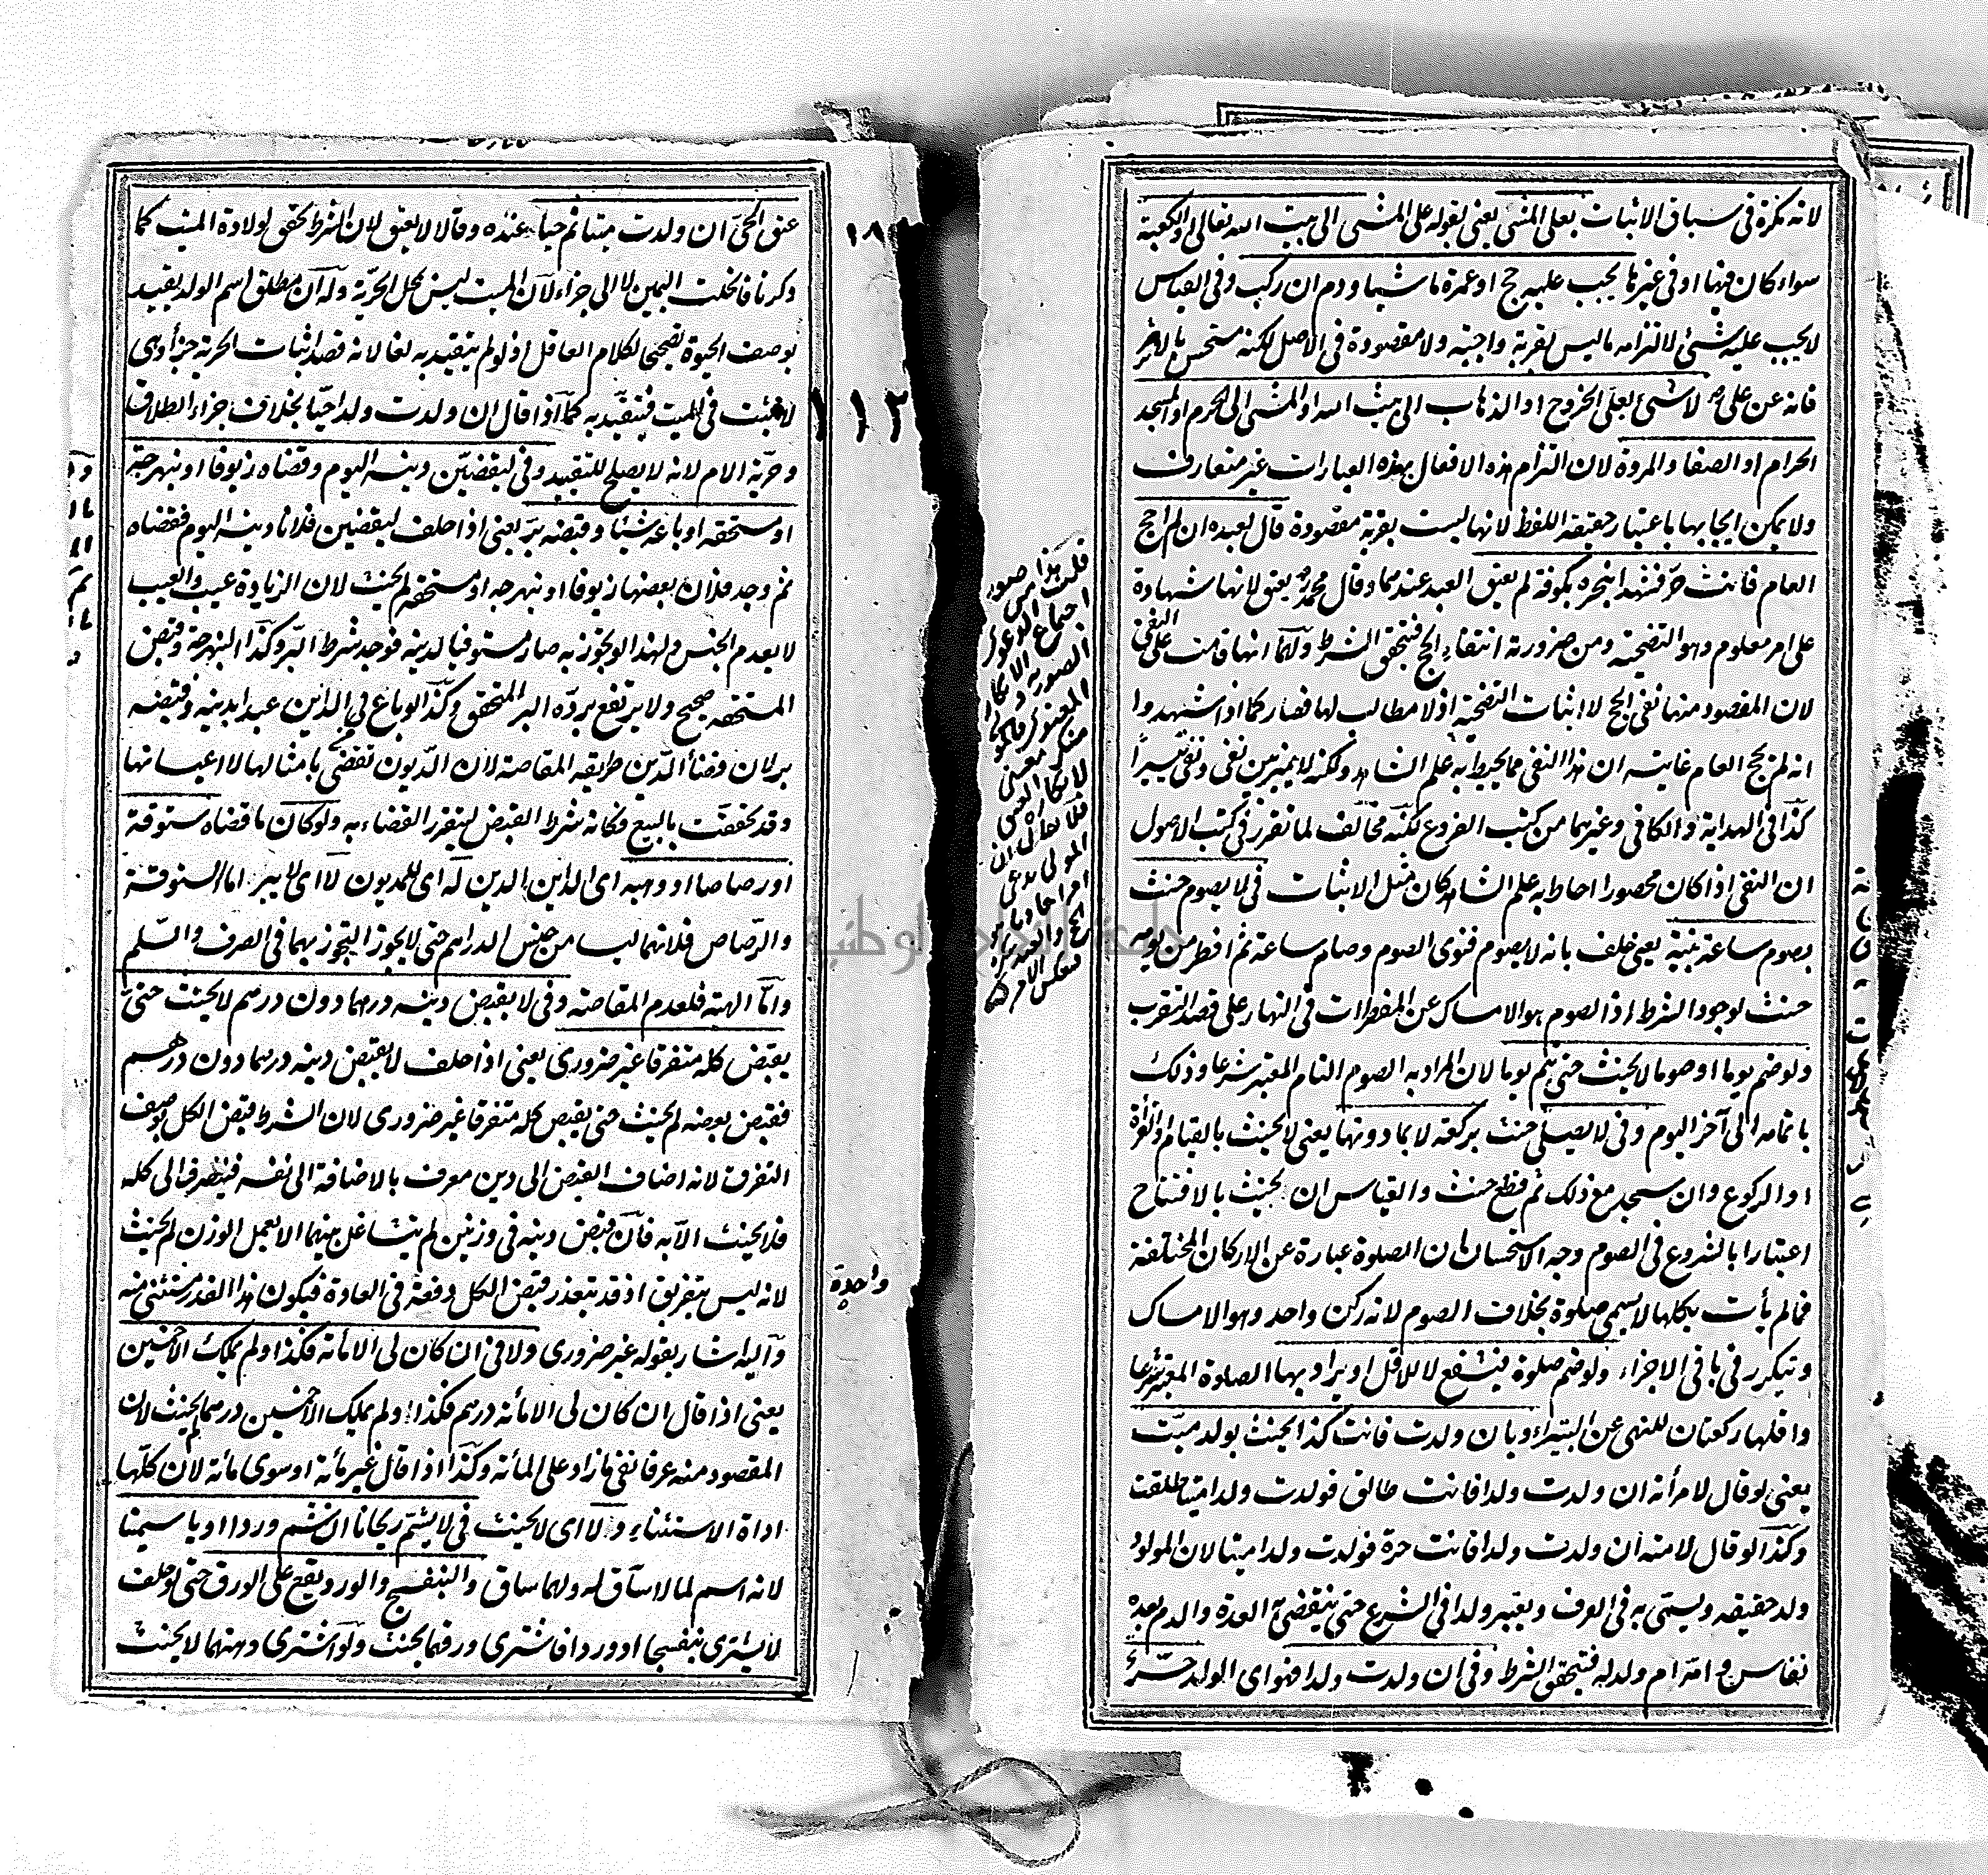 لانه نكرة فى سياق الاثبات بعلى المشى يعنى بقوله على المشى الى بيت الله تعالى او الكعبة
سواء كان فيها او فى غيرها يجب عليه حج او عمرة ماشيا ودم ان ركب وفى القياس
لا يجب عليه شئ لالتزامه ما ليس بقربة واجبة ولا مقصودة فى الاصل لكنه مستحسن بالاثر
فانه عن على رض لا شئ بعلى الخروج او الذهاب الى بيت الله او المشى الى الحرم او المسجد
الحرام او الصفا والمروة لان التزام هذه الافعال بهذه العبارات غير متعارف
ولا يمكن ايجابها باعتبار حقيقة اللفظ لانها ليست بقربة مقصودة قال لعبده ان لم احج
العام فانت حر فشهدا بنحره بكوفة لم يعتق العبد عندهما وقال محمد رح يعتق لانها شهادة
على امر معلوم وهو التضحية ومن ضرورته انتفاء الحج فتحقق الشرط ولهما انها قامت على النفى
لان المقصود منها نفى الحج لا اثبات التضحية اذ لا مطالب لها فصار كما اذا اشهدوا
انه لم يحج العام غايته ان هذا النفى مما يحيط به علم الشاهد ولكنه لا يميز بين نفى ونفى تيسيرا
كذا فى الهداية والكافى وغيرهما من كتب الفروع لكنه مخالف لما تقرر فى كتب الاصول
ان النفى اذا كان محصورا احاط به علم الشاهد كان مثل الاثبات فى لا يصوم حنث
بصوم ساعة بنية يعنى حلف بانه لا يصوم فنوى الصوم وصام ساعة ثم افطر من يومه
حنث لوجود الشرط اذ الصوم هو الامساك عن المفطرات فى النهار على قصد التقرب
ولو ضم يوما او صوما لا يحنث حتى يتم يوما لان المراد به الصوم التام المعتبر شرعا وذلك
باتمامه الى آخر اليوم وفى لا يصلى حنث بركعة لا بما دونها يعنى لا يحنث بالقيام او القراءة
او الركوع وان سجد مع ذلك ثم قطع حنث والقياس ان يحنث بالافتتاح
اعتبارا بالشروع فى الصوم وجه الاستحسان ان الصلوة عبارة عن الاركان المختلفة
فما لم يأت بكلها لا يسمى صلوة بخلاف الصوم لانه ركن واحد وهو الامساك
وتيكرر فى باقى الاجزاء ولو ضم صلوة فبشفع لا للاقل اذ يراد بها الصلوة المعتبرة شرعا
واقلها ركعتان للنهى عن البتيراء وبان ولدت فانت كذا يحنث بولد ميت
يعنى لو قال لامرأته ان ولدت ولدا فانت طالق فولدت ولدا ميتا طلقت
وكذا لو قال لامته ان ولدت ولدا فانت حرة فولدت ولدا ميتا لان المولود
ولد حقيقة ويسمى به فى العرف ويعتبر ولدا فى الشرع حتى ينقضى به العدة والدم بعده
نفاس وامه ام ولد له فتحقق الشرط وفى ان ولدت ولدا فهو اى الولد حر
قلت هذا من صور
اجتماع
الصورية
ان
المولى يدعى
١٨٢
١١٢
عتق الحى ان ولدت ميتا ثم حيا عنده وقالا لا يعتق لان الشرط تحقق بولادة الميت كما
ذكرنا فانحلت اليمين لا الى جزاء لان الميت ليس بمحل الحرية وله ان مطلق اسم الولد يقيد
بوصف الحيوة تصحيحا لكلام العاقل اذ لو لم يتقيد به لغا لانه قصد اثبات الحرية جزاء وهى
لا تثبت فى الميت فيتقيد به كما اذا قال ان ولدت ولدا حيا بخلاف جزاء الطلاق
وحرية الام لانه لا يصلح للتقييد وفى ليقضين دينه اليوم وقضاه زيوفا او نبهرجة
او مستحقة او باعه شيئا وقبضه بر يعنى اذا حلف ليقضين فلانا دينه اليوم فقضاه
ثم وجد فلان بعضها زيوفا او نبهرجة او مستحقة لم يحنث لان الزيادة عيب والعيب
لا يعدم الجنس ولهذا لو تجوز به صار مستوفيا لدينه فوجد شرط البر وكذا النبهرجة وقبض
المستحقة صحيح ولا يرتفع برده البر المتحقق وكذا لو باع فى الدائن عبدا بدينه وقبضه
بر لان قضاء الدين طريقه المقاصة لان الديون تقضى بامثالها لا اعيانها
وقد تحققت بالبيع فكانه شرط القبض ليتقرر القضاء به ولو كان ما قضاه ستوقة
او رصاصا او وهبه اى الداين الدين له اى للمديون لا اى لا يبر اما الستوقة
والرصاص فلانهما ليسا من جنس الدراهم حتى لا يجوز التجوز بهما فى الصرف والسلم
واما الهبة فلعدم المقاصة وفى لا يقبض دينه درهما دون درهم لا يحنث حتى
يقبض كله متفرقا غير ضرورى يعنى اذا حلف لا يقبض دينه درهما دون درهم
فقبض بعضه لم يحنث حتى يقبض كله متفرقا غير ضرورى لان الشرط قبض الكل بوصف
التفرق لانه اضاف القبض الى دين معرف بالاضافة الى نفسه فينصرف الى كله
فلا يحنث الا به فان قبض دينه فى وزنين لم يتشاغل بينهما الا بعمل الوزن لم يحنث
لانه ليس بتفريق اذ قد يتعذر قبض الكل دفعة فى العادة فيكون هذا القدر مستثنى منه
واحدة
واليه اشار بقوله غير ضرورى ولا فى ان كان لى الا مأة فكذا ولم يملك الا خمسين
يعنى اذا قال ان كان لى الا مأة درهم فكذا ولم يملك الا خمسين درهما لم يحنث لان
المقصود منه عرفا نفى ما زاد على المأة وكذا اذا قال غير مأة او سوى مأة لان كلها
اداة الاستثناء ولا اى لا يحنث فى لا يشم ريحانا ان شم وردا او ياسمينا
لانه اسم لما لا ساق له ولهما ساق والبنفسج والورد يقع على الورق حتى لو حلف
لا يشترى بنفسجا او وردا فاشترى ورقهما يحنث ولو اشترى دهنهما لا يحنث